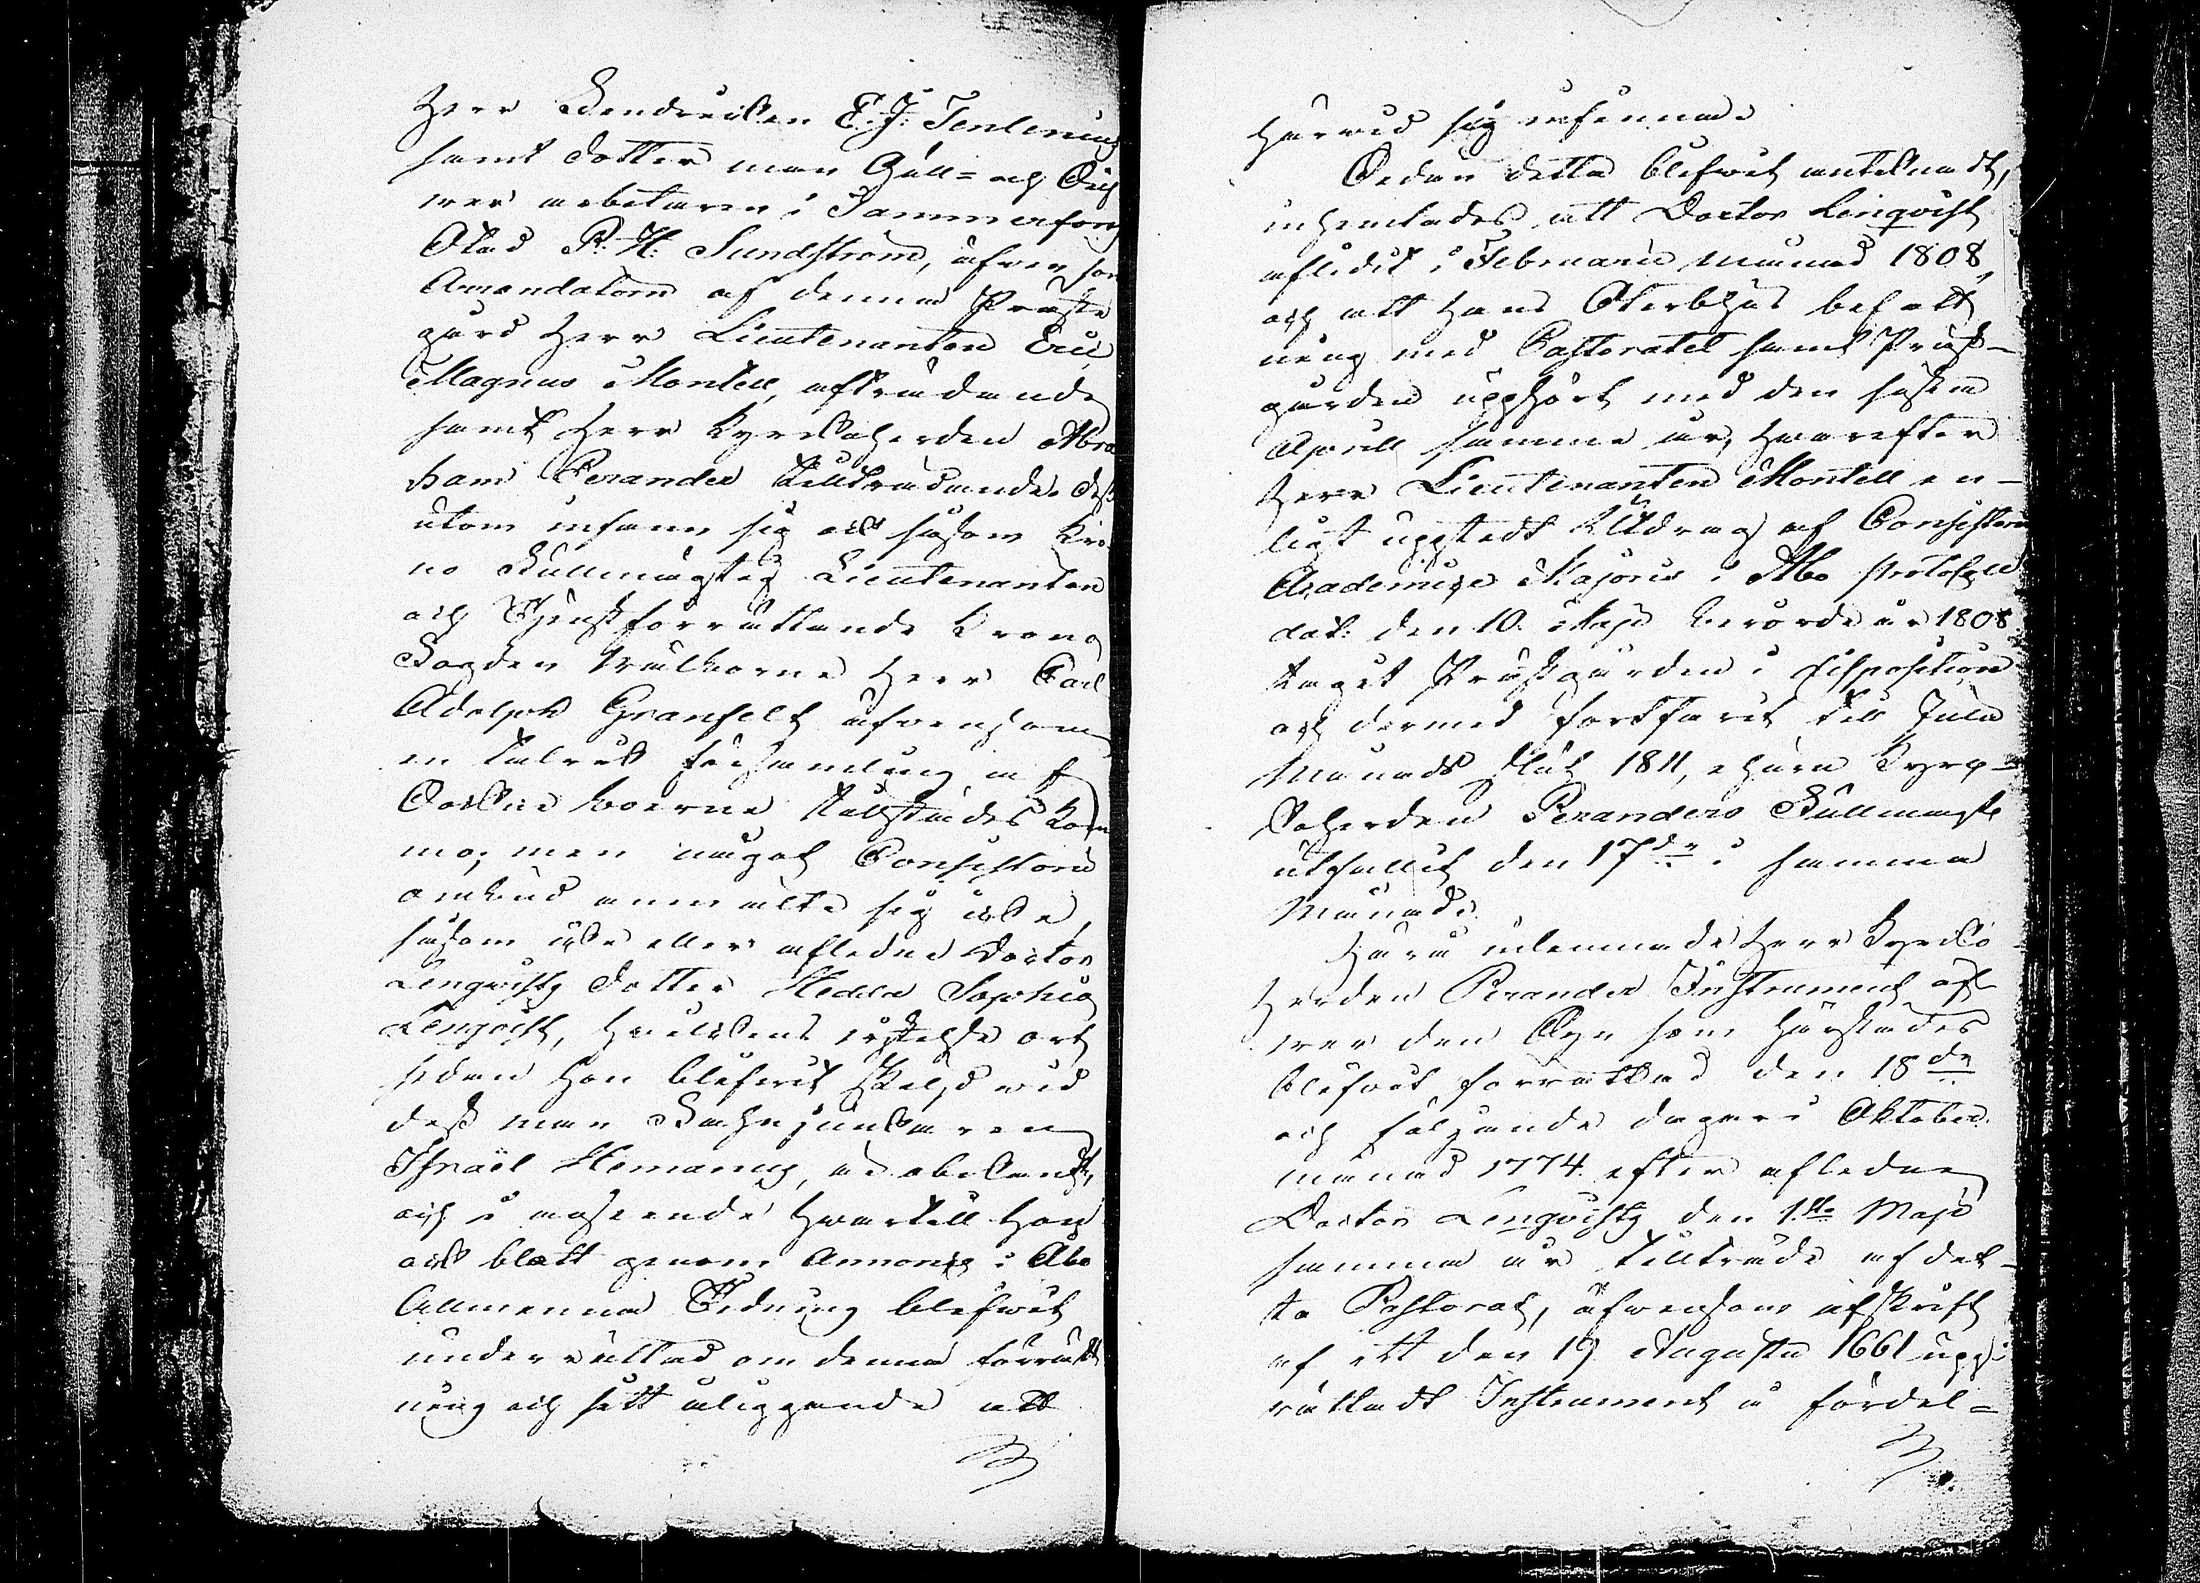 Herr Fendricken E. J. Tenlenius
samt dotter man Gull- och Silf
wer arbetaren i Tammerfors
Stad P. H. Sundström, äfwen som
Arrendatorn af denna Präste
gård Herr Lieutenanten Eric
Magnus Montell, afträdande
samt Herr Kyrckoherden Abra
ham Perander tillträdande. Dess
utom infann sig ock såsom Kro
no Fullmägtig Lieutenanten
och Tjenstförrättande Krono
Fogden Wälborne Herr Carl
Adolph Granfelt äfwensom
en talrik församling af
Sockne boerne tillstädes kom
mo; men något Consistorii
ombud anmälte sig icke,
såsom icke eller aflidne Doctor
Lenqvists dotter Hedda Sophia
Lenqvist, hwilckens wistelse ort
sedan hon blifwit skild wid
dess man Fahnjunkaren
Israël Homanus, är obekant,
och i anseende hwartill hon
ock blott genom Annonce i Åbo
Allmenna Tidning blifwit
underrättad om denna förrätt
ning och sitt åliggande att
härwid sig infinna.
Sedan detta blifwit antecknadt,
inhemtades, att Doctor Lenqvist
aflidit i Februarii månad 1808,
och att hans Sterbhus befatt
ning med Pastoratet samt Präst-
gården upphört med den sista
Aprill samma år, hwarefter
Herr Lieutenanten Montell en-
ligt uppstedt Utdrag af Consistorii
Academici Majoris i Åbo protocoll
dat: den 10. Maji berörde år 1808.
tagit Prästgården i disposition
och dermed fortfarit till Julii
Månads slut 1811, ehuru Kyrcko-
herden Peranders Fullmagt
utfallit den 17de i samma
Månad.
Häru inlemnade Herr Kyrcko
herden Perander Instrument öf
wer den Syn som härstädes
blifwit förrättad den 18de
och följande dagar i Oktober
månad 1774. efter aflidne
Doctor Lenqvists den 1sta Maji
samma år tillträde af det-
ta Pastorat, äfwensom afskrift
af ett den 19 Augusti 1661 upp-
rättadt Instrument å fördel-